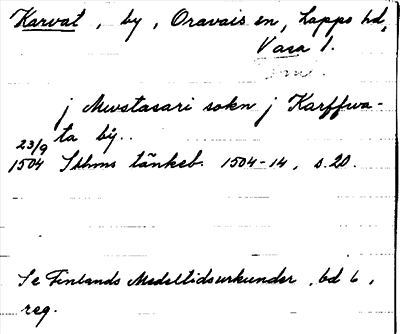 Karvat, by, Oravais sn, Lappo hd,
Vasa l.
j Mwstasari sokn j Karffwa-
ta by..
23/9
1504 Sthms tänkeb. 1504-14, s. 20.
Se Finlands Medeltidsurkunder, bd 6,
reg.